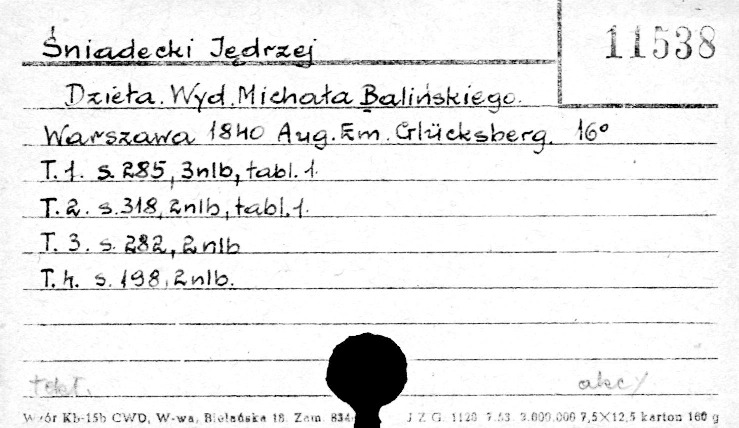 Śniadecki Jędrzej
11538
Dzieła. Wyd. Michała Balińskiego.
Warszawa 1840 Aug. Em. Glücksberg. 16°
T. 1. s. 285, 3nlb, tabl. 1.
T. 2. s. 318, 2nlb, tabl. 1.
T. 3. s. 282, 2nlb
T. 4. s. 198, 2nlb.
Wzór Kb-15b CWD, W-wa, Bielańska 18. Zam. 834 JZG. 1120 7.53. 3.000.000 7,5×12,5 karton 160 g